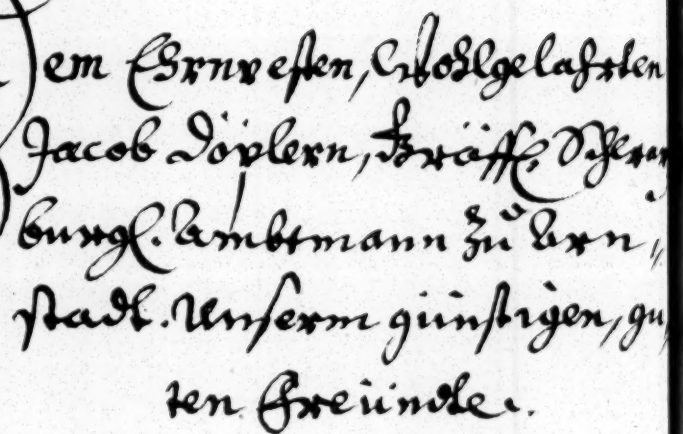 Dem Ehrnvesten, Wohlgelahrten
Jacob Döplern, Gräffl. Schwar
burgl. Ambtmann zu Arn,
stadt. Unserm günstigen, gu
ten Freündte.